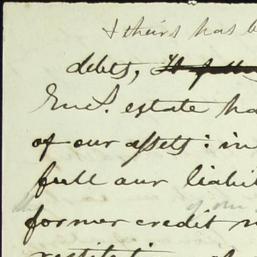 & theirs has b
debts,
Eng. estate ha
of our assets: in
full our liabil
former credit